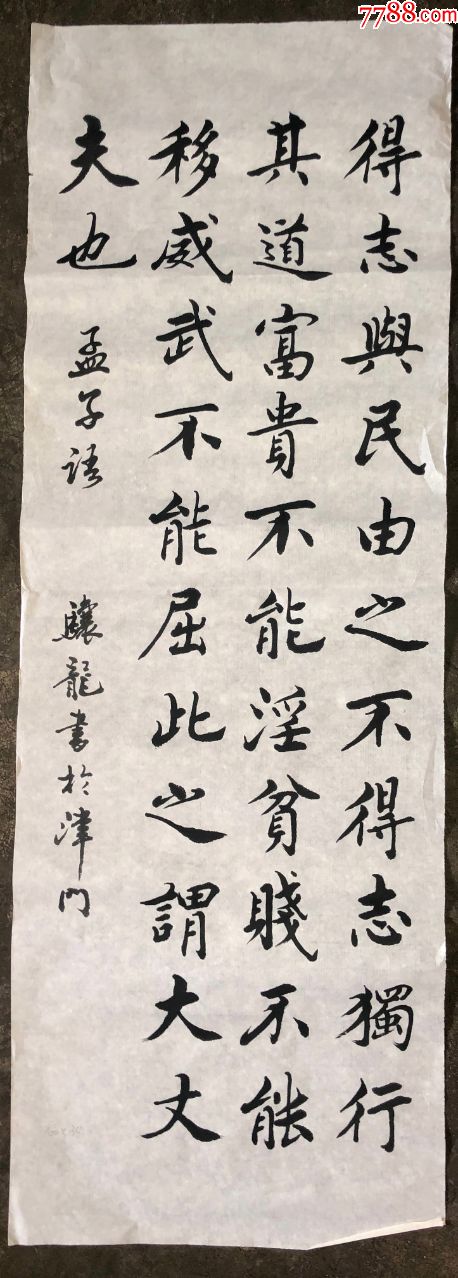 7788.com
得志與民由之不得志獨行
其道富貴不能淫貧賤不能
移威武不能屈此之謂大丈
夫也
孟子語
驤龍書於津門